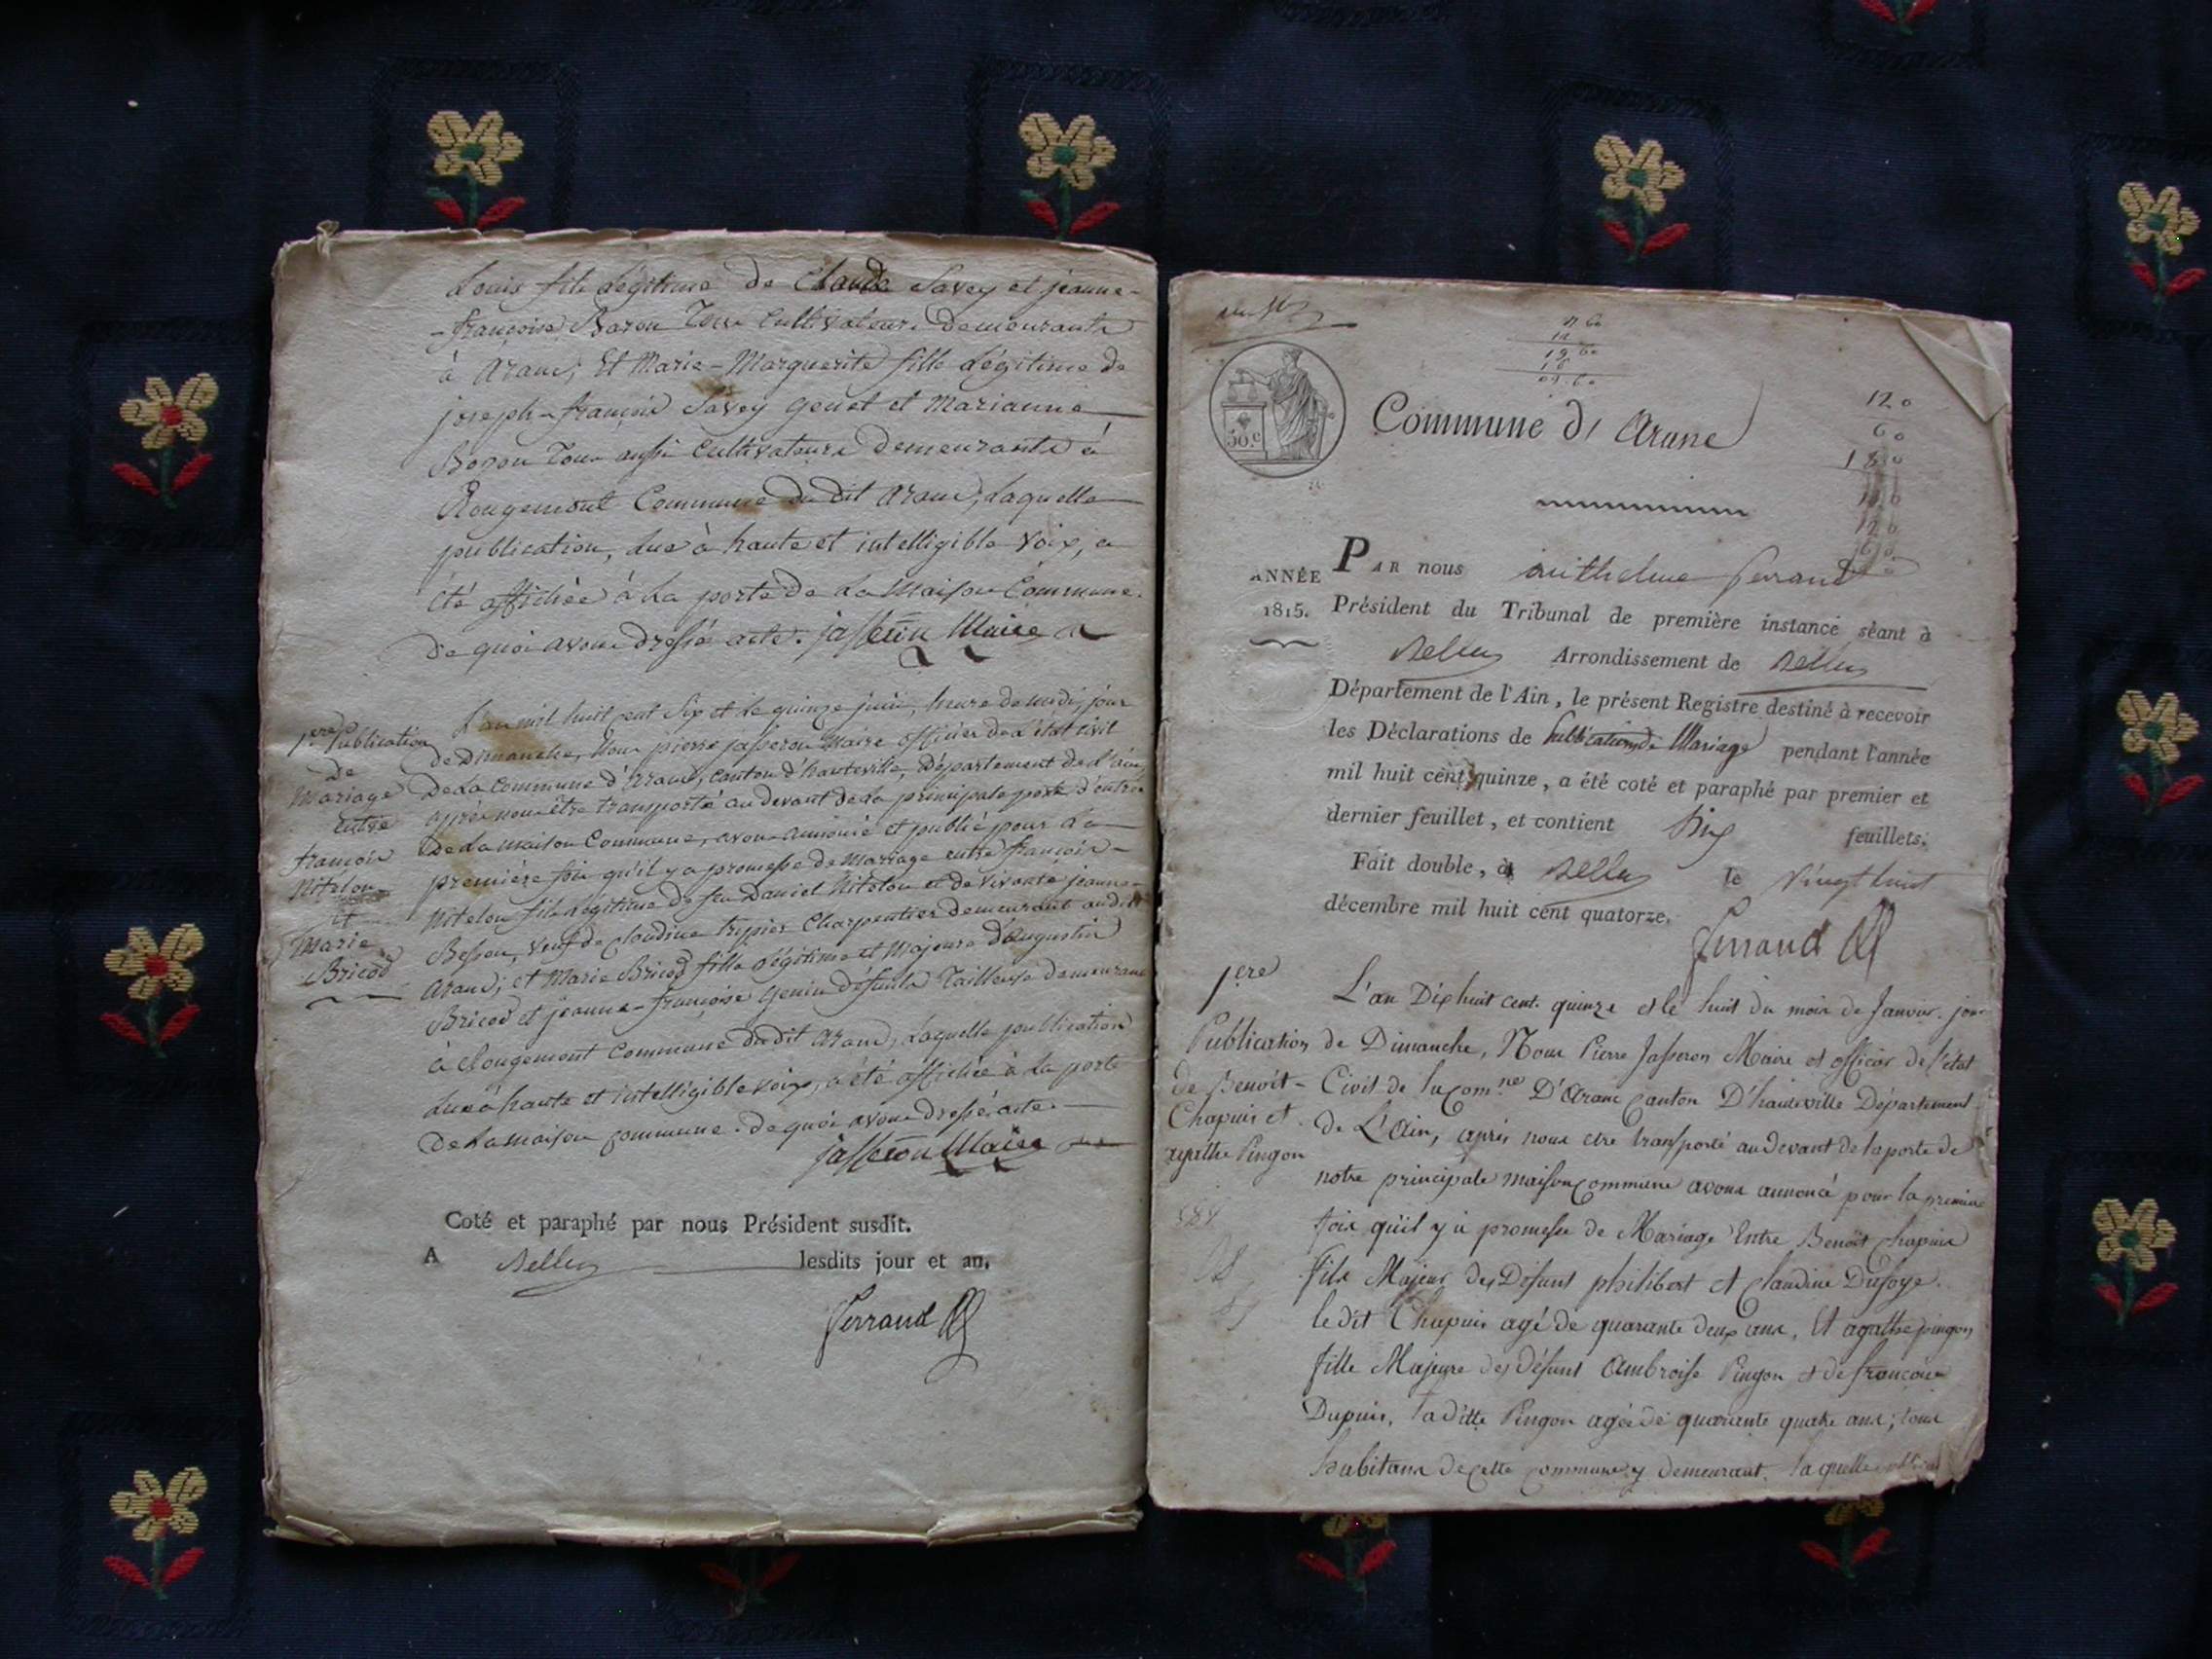 Louis fils légitime de Claude Savey et jeanne-
-françoise Bozon Tous Cultivateurs demeurants
à Aranc; Et Marie-Marguerite fille légitime de
joseph-françois Savey genet et Marianne
Bozon Tous aussi Cultivateurs demeurants à
Rougemont Commune du dit Aranc, Laquelle
publication, lue à haute et intelligible Voix, a
été affichée à La porte de La Maison Commune.
De quoi avons dressé acte. jasseron Maire
1ere Publication
De
Mariage
entre
françois
Nitelon
et
Marie
Bricod
L'an mil huit cent Six et le quinze juin, heure de midi, jour
de Dimanche, Nous pierre jasseron Maire officier de L'état civil
De La Commune d'Aranc, canton d'hauteville, Département de L'ain,
après nous être transporté au devant de La principale porte d'entrée
De La maison Commune, avons annoncé et publié pour La
première fois qu'il y a promesse de Mariage entre françois-
Nitelon fils légitime de feu Daniel Nitelon et de vivante jeanne-
Besson, Veuf de Claudine tripier Charpentier demeurant au dit
Aranc; et Marie Bricod fille légitime et Majeure d'Augustin
Bricod et jeanne-françoise genin défunts Tailleuse demeurant
à Rougemont Commune du dit Aranc, Laquelle publication
Lue à haute et intelligible voix, a été affichée à La porte
De La maison commune. de quoi avons dressé acte.
jasseron Maire
Coté et paraphé par nous Président susdit.
A Belley lesdits jour et an.
Ferrand
50.c
Commune d' Aranc
120
60
180
ANNÉE
1815.
PAR nous anthelme ferrand
Président du Tribunal de première instance séant à
Belley Arrondissement de Belley
Département de l'Ain, le présent Registre destiné à recevoir
les Déclarations de Publications de Mariage pendant l'année
mil huit cent quinze, a été coté et paraphé par premier et
dernier feuillet, et contient Six feuillets.
Fait double, à Belley le Vingt huit
décembre mil huit cent quatorze.
Ferrand
1.ere
Publication
de Benoît-
Chapuis et
agathe Pingon
L'an Dix huit cent quinze et le huit du mois de Janvier. jour
de Dimanche, Nous Pierre Jasseron Maire et officier de l'état
Civil de la com.ne D'Aranc Canton D'hauteville Département
de L'Ain, après nous etre transporté au devant de la porte de
notre principale maison commune avons annoncé pour la premiere
fois qu'il y a promesse de Mariage Entre Benoît Chapuis
fils Majeur des Défunt philibert et Claudine Dufoye.
le dit Chapuis agé de quarante deux ans, Et agathe pingon
fille Majeure des défunt Ambroise Pingon et de françoise
Dupuis, la ditte Pingon agée de quarante quatre ans; tous
habitans de cette commune y demeurant. laquelle